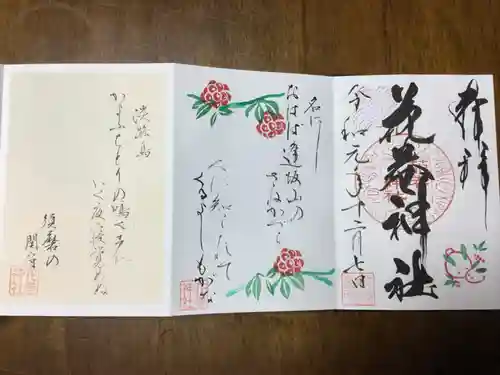 奉拝
神社
令和元年十二月七日
名にし
おはば逢坂山の
さねかづら
人に知られて
くるよしもがな
淡路島
かよふちとりの鳴くこゑに
いく夜
須磨の
関守